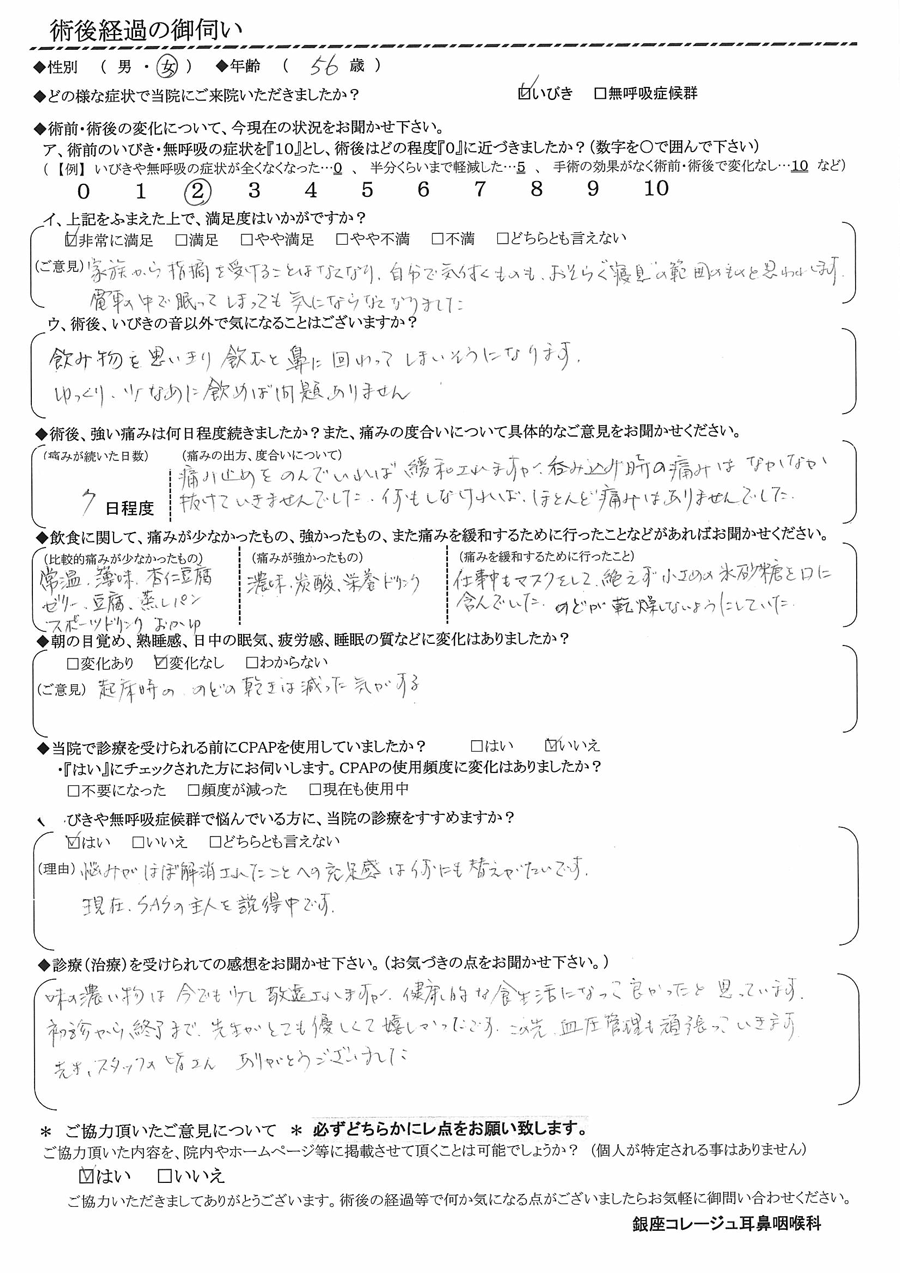 術後経過の御伺い
◆性別 ( 男 ・ 女 ) ◆年齢 ( 56 歳 )
◆どの様な症状で当院にご来院いただきましたか? ☑いびき □無呼吸症候群
◆術前・術後の変化について、今現在の状況をお聞かせ下さい。
ア、術前のいびき・無呼吸の症状を『10』とし、術後はどの程度『0』に近づきましたか?(数字を〇で囲んで下さい)
(【例】 いびきや無呼吸の症状が全くなくなった…0 、 半分くらいまで軽減した…5 、 手術の効果がなく術前・術後で変化なし…10 など)
0 1 2 3 4 5 6 7 8 9 10
イ、上記をふまえた上で、満足度はいかがですか?
☑非常に満足 □満足 □やや満足 □やや不満 □不満 □どちらとも言えない
(ご意見) 家族から指摘を受けることはなくなり、自分で気付くものも、おそらく"寝息"の範囲のものと思われます。
電車の中で眠ってしまっても気にならなくなりました
ウ、術後、いびきの音以外で気になることはございますか?
飲み物を思いきり飲むと鼻に回わってしまいそうになります。
ゆっくり、少なめに飲めば問題ありません
◆術後、強い痛みは何日程度続きましたか?また、痛みの度合いについて具体的なご意見をお聞かせください。
(痛みが続いた日数) (痛みの出方、度合いについて)
痛み止めをのんでいれば緩和されますが、呑み込む時の痛みはなかなか
日程度 抜けていきませんでした。何もしなければ、ほとんど痛みはありませんでした。
◆飲食に関して、痛みが少なかったもの、強かったもの、また痛みを緩和するために行ったことなどがあればお聞かせください。
(比較的痛みが少なかったもの) (痛みが強かったもの) (痛みを緩和するために行ったこと)
常温、薄味、杏仁豆腐 濃味、炭酸、栄養ドリンク 仕事中もマスクをして、絶えず小さめの氷砂糖を口に
ゼリー、豆腐、蒸しパン 含んでいた。のどが乾燥しないようにしていた。
スポーツドリンク おかゆ
◆朝の目覚め、熟睡感、日中の眠気、疲労感、睡眠の質などに変化はありましたか?
□変化あり ☑変化なし □わからない
(ご意見) 起床時の、のどの乾きは減った気がする
◆当院で診療を受けられる前にCPAPを使用していましたか? □はい ☑いいえ
・『はい』にチェックされた方にお伺いします。CPAPの使用頻度に変化はありましたか?
□不要になった □頻度が減った □現在も使用中
びきや無呼吸症候群で悩んでいる方に、当院の診療をすすめますか?
☑はい □いいえ □どちらとも言えない
(理由) 悩みがほぼ解消されたことへの充足感は何にも替えがたいです。
現在、SASの主人を説得中です。
◆診療(治療)を受けられての感想をお聞かせ下さい。(お気づきの点をお聞かせ下さい。)
味の濃い物は今でも少し敬遠されますが、健康的な食生活になって良かったと思っています。
初診から終了まで、先生がとても優しくて嬉しかったです。この先、血圧管理も頑張っていきます
先生、スタッフの皆さん ありがとうございました
＊ ご協力頂いたご意見について ＊ 必ずどちらかにレ点をお願い致します。
ご協力頂いた内容を、院内やホームページ等に掲載させて頂くことは可能でしょうか? (個人が特定される事はありません)
☑はい □いいえ
ご協力いただきましてありがとうございます。術後の経過等で何か気になる点がございましたらお気軽に御問い合わせください。
銀座コレージュ耳鼻咽喉科